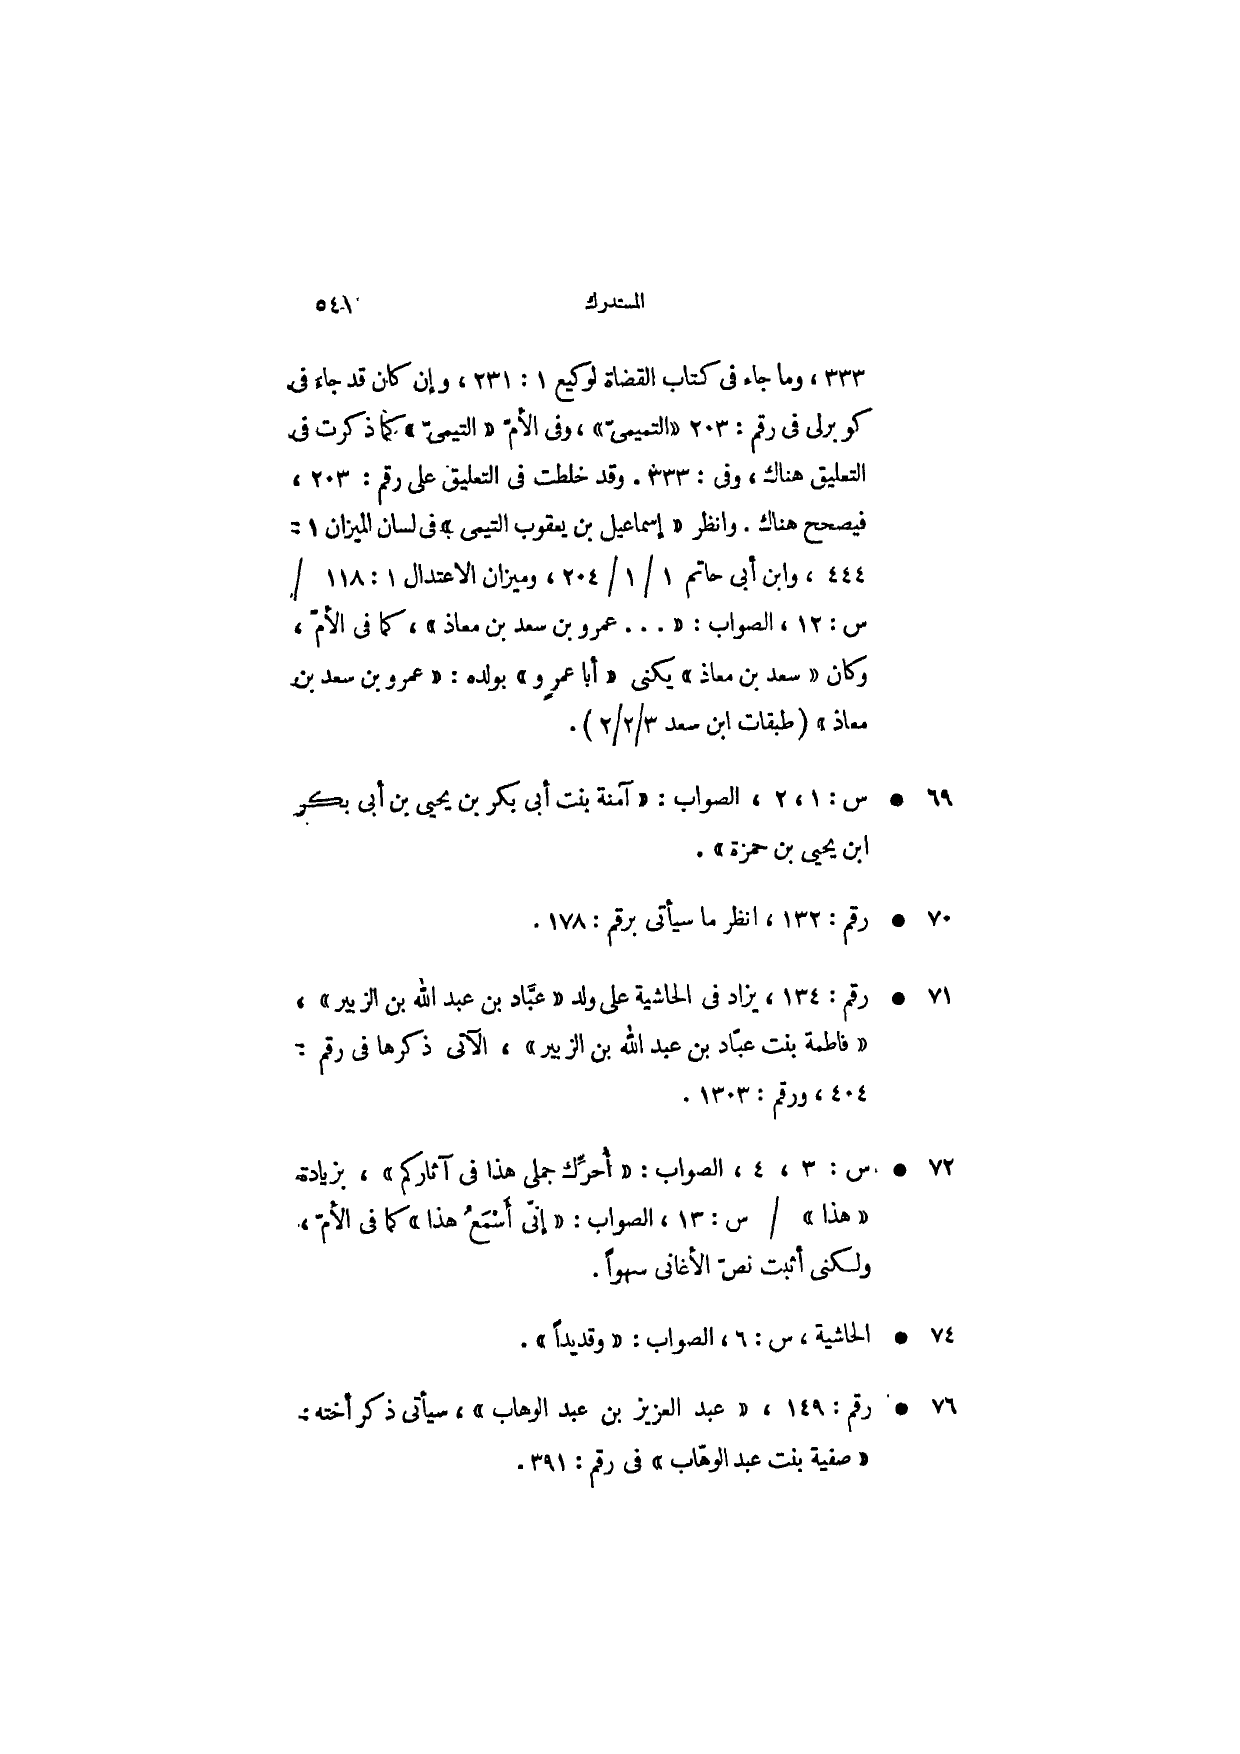 المستدرك ٥٤١
٣٣٣ ، وما جاء فى كتاب القضاة لوكيع ١ : ٢٣١ ، وإن كان قد جاء فى
كوبرلى فى رقم : ٢٠٣ «التميمىّ» ، وفى الأمّ « التيمىّ » كما ذكرت فى
التعليق هناك ، وفى : ٣٣٣ . وقد خلطت فى التعليق على رقم : ٢٠٣ ،
فيصحح هناك . وانظر « إسماعيل بن يعقوب التيمى » فى لسان الميزان ١ :
٤٤٤ ، وابن أبى حاتم ١ / ١ / ٢٠٤ ، وميزان الاعتدال ١ : ١١٨ /
س : ١٢ ، الصواب : « . . . عمرو بن سعد بن معاذ » ، كما فى الأمّ ،
وكان « سعد بن معاذ » يكنى « أبا عمرٍو » بولده : « عمرو بن سعد بن
معاذ » ( طبقات ابن سعد ٢/٢/٣ ) .
٦٩ ● س : ١ ، ٢ ، الصواب : « آمنة بنت أبى بكر بن يحيى بن أبى بكر
ابن يحيى بن حمزة » .
٧٠ ● رقم : ١٣٢ ، انظر ما سيأتى برقم : ١٧٨ .
٧١ ● رقم : ١٣٤ ، يزاد فى الحاشية على ولد « عبَّاد بن عبد الله بن الزبير » ،
« فاطمة بنت عبّاد بن عبد الله بن الزبير » ، الآتى ذكرها فى رقم :
٤٠٤ ، ورقم : ١٣٠٣ .
٧٢ ● س : ٣ ، ٤ ، الصواب : « أُحرِّك جملى هذا فى آثاركم » ، بزيادة
« هذا » / س : ١٣ ، الصواب : « إنّى أَسْمَعُ هذا » كما فى الأمّ ،
ولكنى أثبت نصّ الأغانى سهواً .
٧٤ ● الحاشية ، س : ٦ ، الصواب : « وقديداً » .
٧٦ ● رقم : ١٤٩ ، « عبد العزيز بن عبد الوهاب » ، سيأتى ذكر أخته :
« صفية بنت عبد الوهّاب » فى رقم : ٣٩١ .